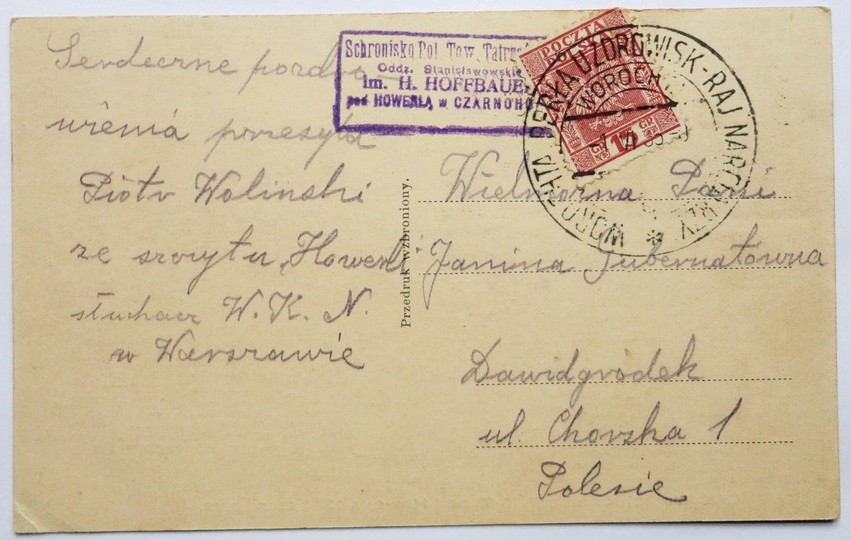 Serdeczne pozdro
wienia przesyła
Piotr Woliński
ze szczytu „Howerli
słuchacz W. K. N.
w Warszawie
Schronisko Pol. Tow. Tatrz
Oddz. Stanisławowskie
im. H. HOFFBAUE
pod HOWERLĄ w CZARNOHO
POCZTA
POLSKA
15
GR
WOROCHTA PERŁA UZDROWISK-RAJ NARCIARZY
WOROCH
Przedruk wzbroniony.
Wielmożna Pani
Janina Gubernatówna
Dawidgródek
ul. Chorska 1
Polesie